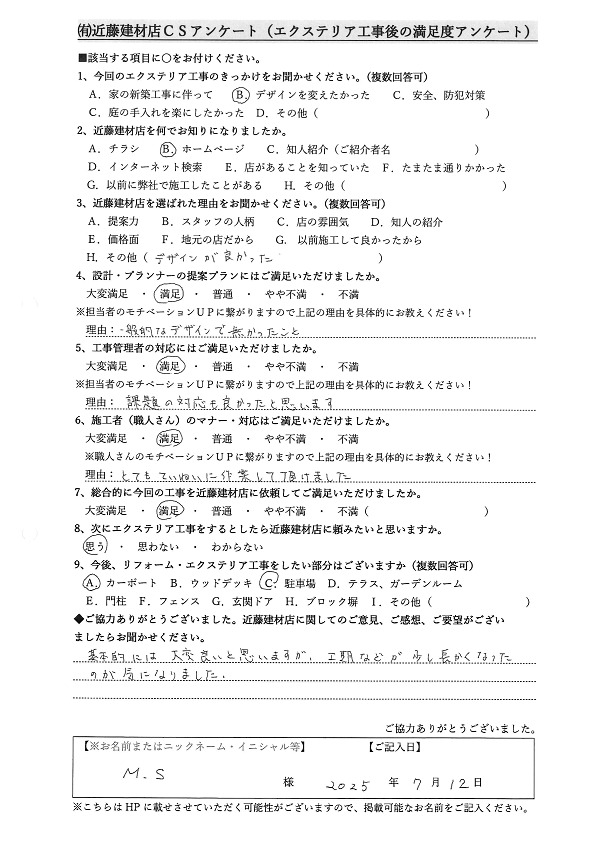 ㈲近藤建材店ＣＳアンケート（エクステリア工事後の満足度アンケート）
■該当する項目に○をお付けください。
1、今回のエクステリア工事のきっかけをお聞かせください。（複数回答可）
A．家の新築工事に伴って　B．デザインを変えたかった　C．安全、防犯対策
C．庭の手入れを楽にしたかった　D．その他（　　　　　　　　　　）
2、近藤建材店を何でお知りになりましたか。
A．チラシ　B．ホームページ　C．知人紹介（ご紹介者名　　　　　　　　　　）
D．インターネット検索　E．店があることを知っていた　F．たまたま通りかかった
G．以前に弊社で施工したことがある　H．その他（　　　　　　　　　　）
3、近藤建材店を選ばれた理由をお聞かせください。（複数回答可）
A．提案力　B．スタッフの人柄　C．店の雰囲気　D．知人の紹介
E．価格面　F．地元の店だから　G．以前施工して良かったから
H．その他（ デザインが良かった　　　　　　　　）
4、設計・プランナーの提案プランにはご満足いただけましたか。
大変満足　・　満足　・　普通　・　やや不満　・　不満
※担当者のモチベーションＵＰに繋がりますので上記の理由を具体的にお教えください！
理由：一般的なデザインで無かったこと
5、工事管理者の対応にはご満足いただけましたか。
大変満足　・　満足　・　普通　・　やや不満　・　不満
※担当者のモチベーションＵＰに繋がりますので上記の理由を具体的にお教えください！
理由：課題の対応も良かったと思います
6、施工者（職人さん）のマナー・対応はご満足いただけましたか。
大変満足　・　満足　・　普通　・　やや不満　・　不満
※職人さんのモチベーションＵＰに繋がりますので上記の理由を具体的にお教えください！
理由：とてもていねいに作業して頂けました
7、総合的に今回の工事を近藤建材店に依頼してご満足いただけましたか。
大変満足　・　満足　・　普通　・　やや不満　・　不満　（　　　　　　　　　　）
8、次にエクステリア工事をするとしたら近藤建材店に頼みたいと思いますか。
思う　・　思わない　・　わからない
9、今後、リフォーム・エクステリア工事をしたい部分はございますか（複数回答可）
A．カーポート　B．ウッドデッキ　C．駐車場　D．テラス、ガーデンルーム
E．門柱　F．フェンス　G．玄関ドア　H．ブロック塀　I．その他（　　　　　　　　　　）
◆ご協力ありがとうございました。近藤建材店に関してのご意見、ご感想、ご要望がござい
ましたらお聞かせください。
基本的には大変良いと思いますが、工期などが少し長かくなった
のが気になりました.
ご協力ありがとうございました。
【※お名前またはニックネーム・イニシャル等】　【ご記入日】
M.S　様　2025 年 7 月 12 日
※こちらはＨＰに載せさせていただく可能性がございますので、掲載可能なお名前をご記入ください。